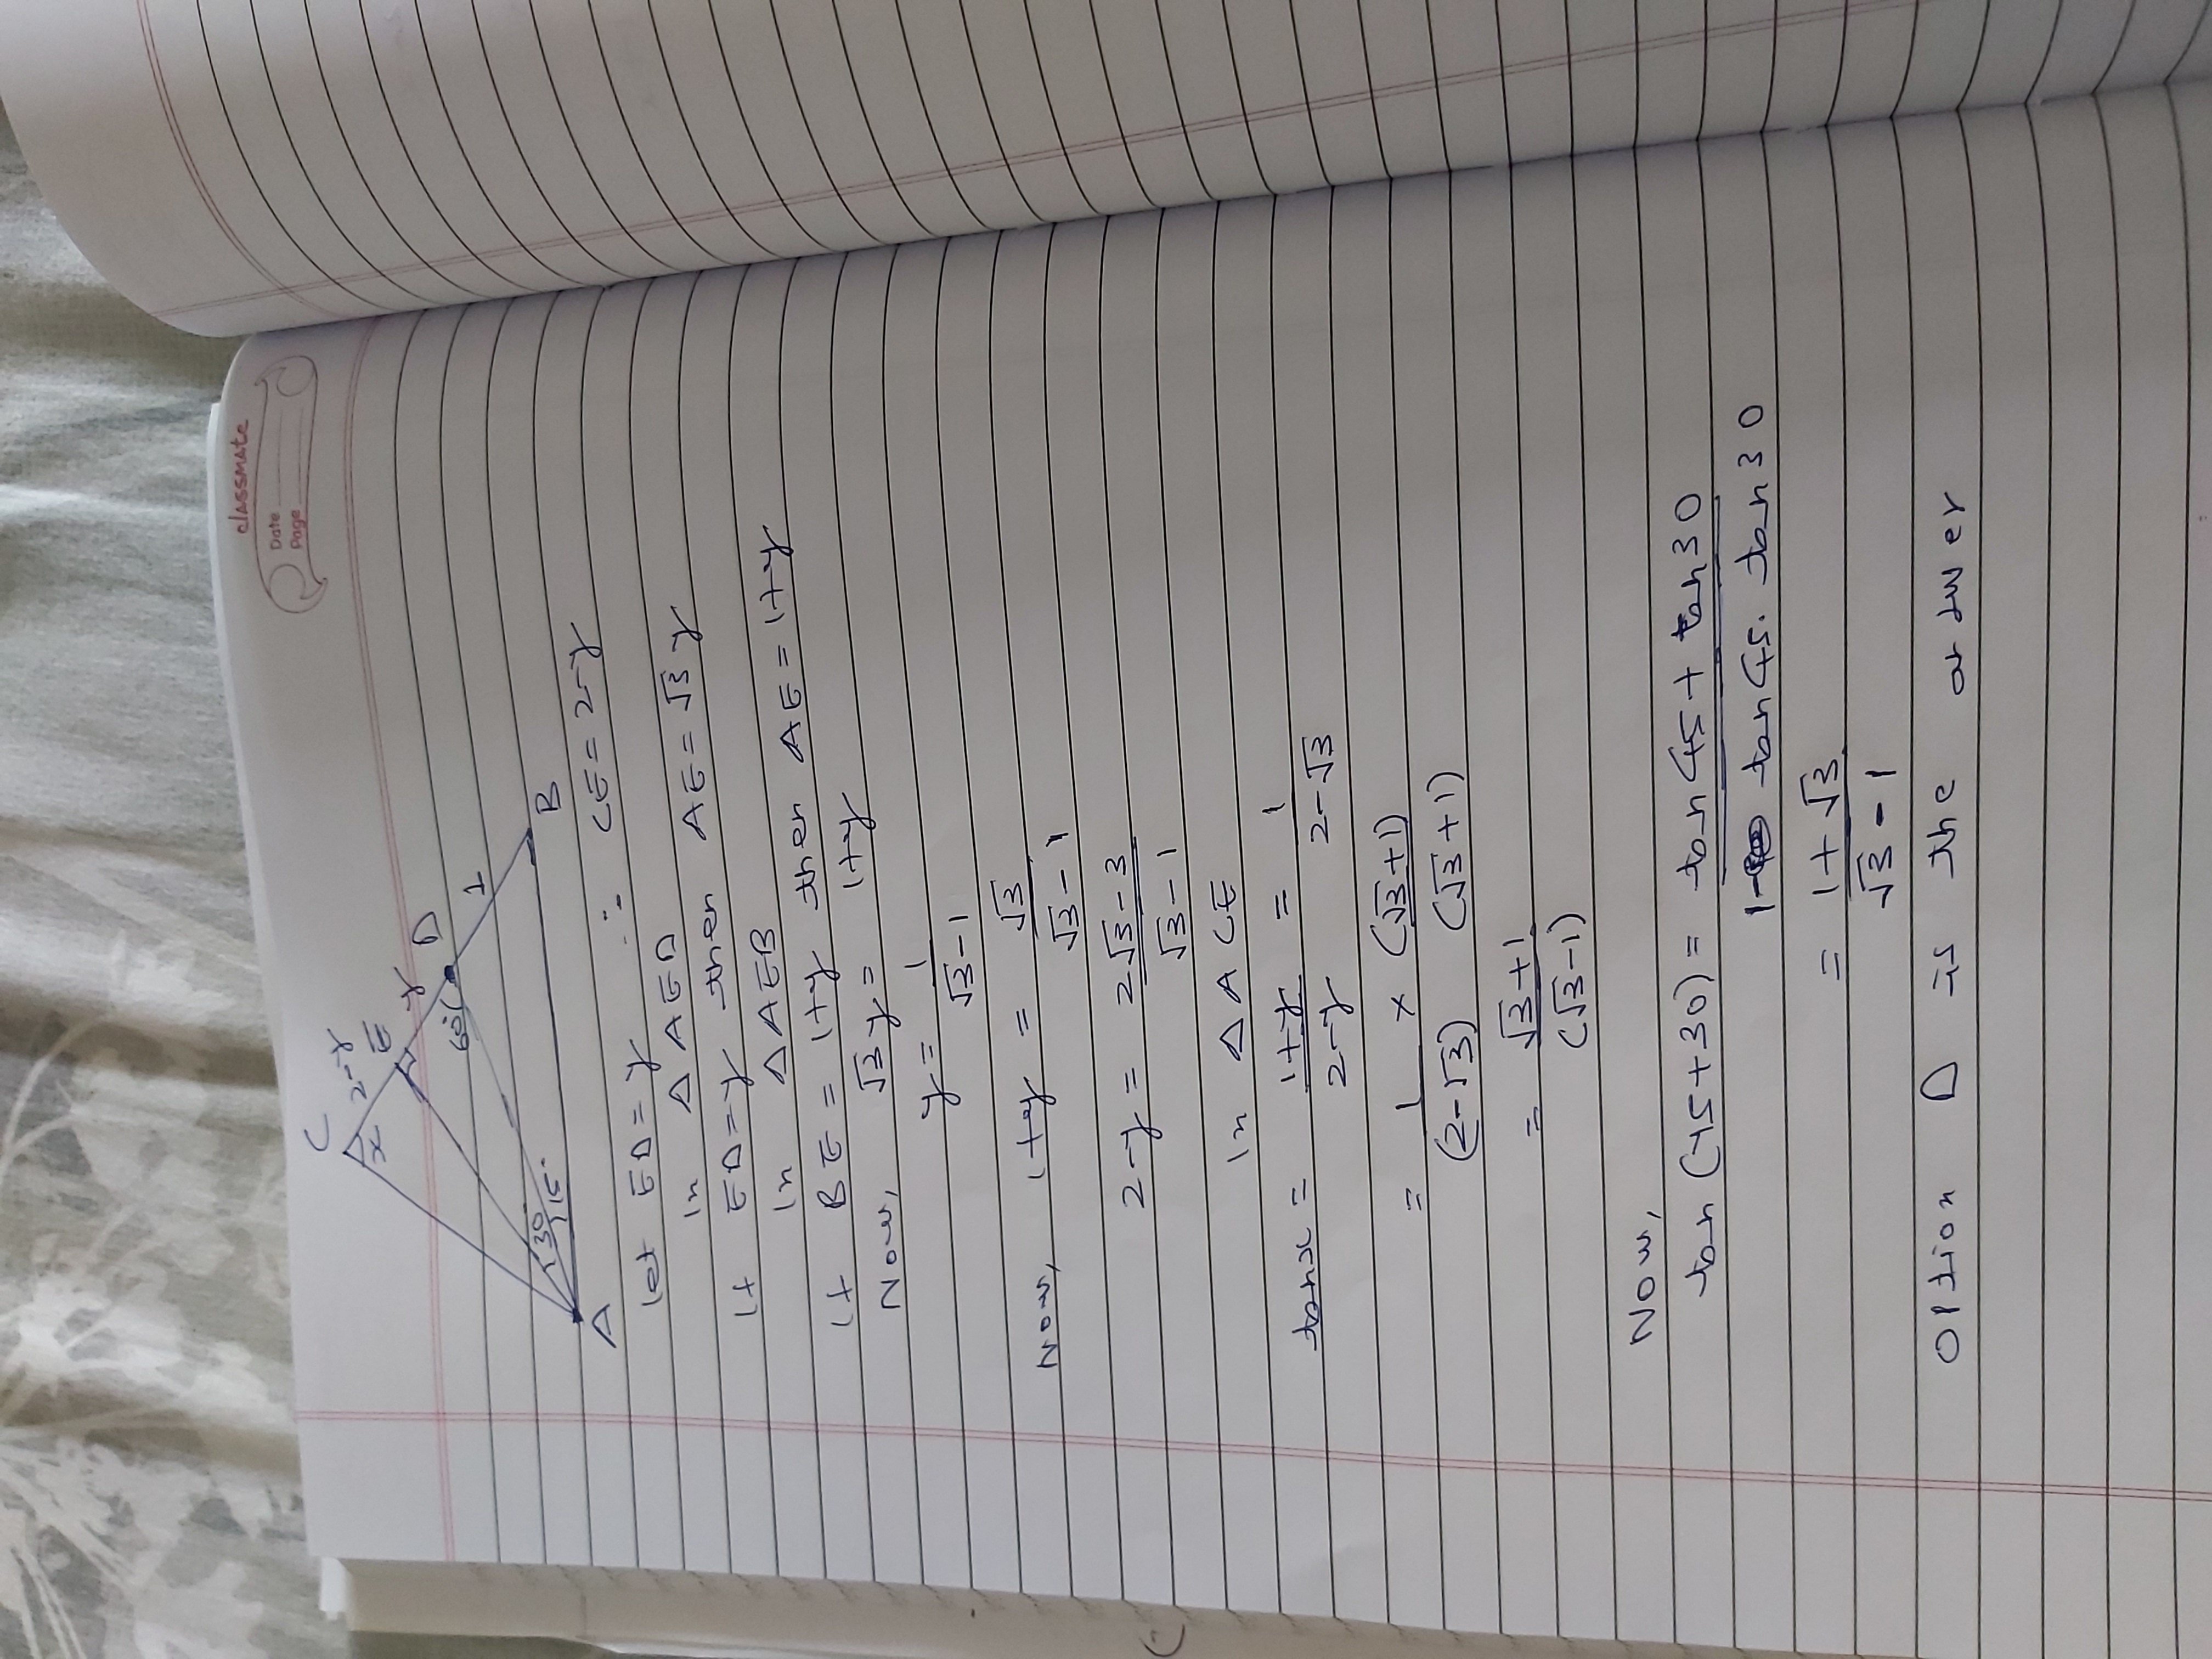 classmate
Date
Page
C
2-y
x
E
y
D
60°
1
30
15°
A
B
let ED = y ∴ CE = 2-y
In Δ AED
If ED = y then AE = √3 y
In Δ AEB
If BE = 1+y then AE = 1+y
Now, √3 y = 1+y
y = 1/(√3-1)
Now, 1+y = √3/(√3-1)
2-y = (2√3-3)/(√3-1)
In Δ ACE
tanx = (1+y)/(2-y) = 1/(2-√3)
= 1/(2-√3) × (√3+1)/(√3+1)
= (√3+1)/(√3-1)
Now,
tan(45+30) = (tan45 + tan30)/(1- tan45. tan30)
= (1+√3)/(√3-1)
Option D is the answer